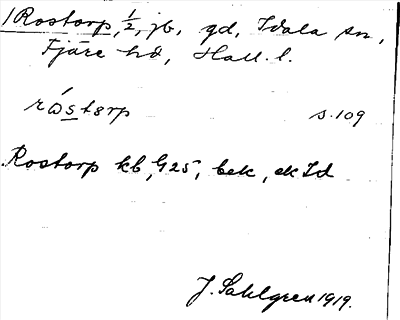 1 Rostorp, 1/2, jb, gd, Idala sn,
Fjäre hd, Hall. l.
ròstɵrp s. 109
Rostorp kb, G25, bek, ek Id
J. Sahlgren 1919.